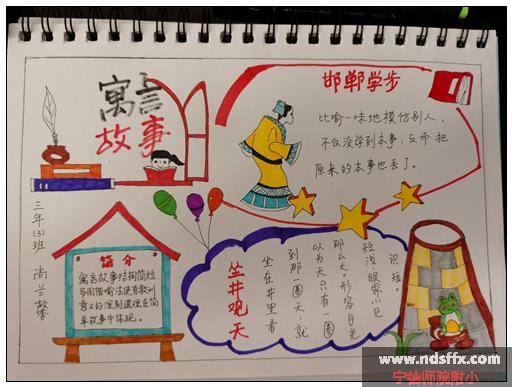 寓言
故事
邯郸学步
比喻一味地模仿别人，
不仅没学到本事，反而把
原来的本事也丢了。
三年(3)班
简介
寓言故事结构简短，
多用借喻法使有教训
意义的深刻道理在简
单故事中体现。
坐井观天
坐在井里看
到那一圈天，就
以为天只有一圈
那么大。形容目光
短浅，眼界小见
识短。
www.ndsffx.com
宁德师院附小